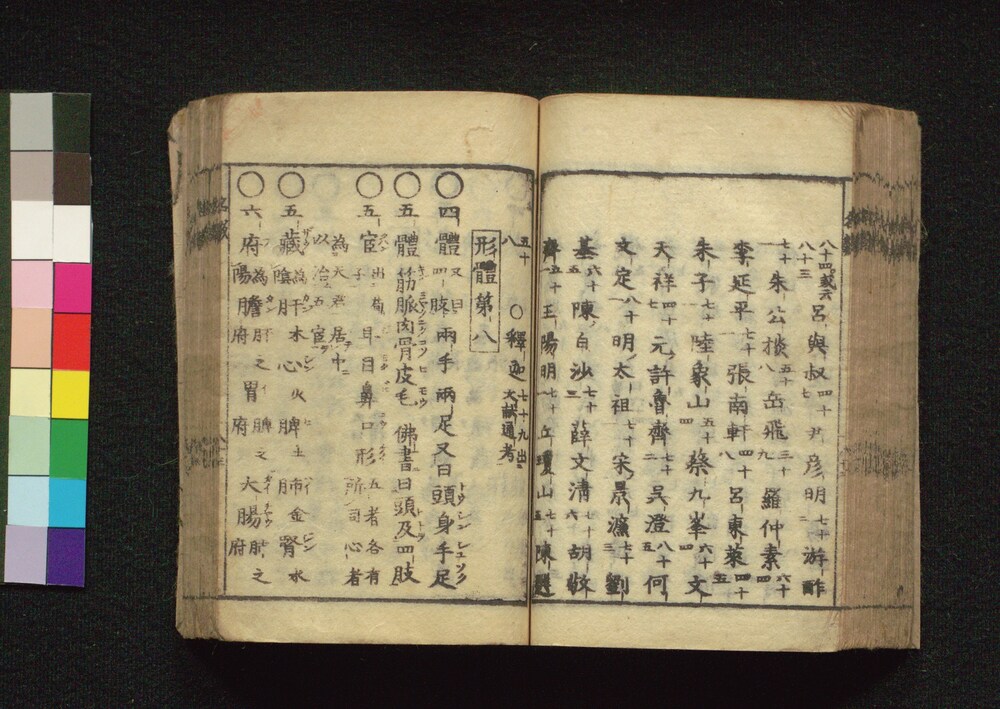 八十四或云八十三 呂與叔四十七 尹彦明七十一 游酢
七十一 朱公掞五十八 岳飛三十九 羅仲素六十四
李延平七十一 張南軒四十八 呂東萊四十五
朱子七十一 陸象山五十四 蔡九峯六十四 文
天祥四十七 元許魯齊 吳澄八十五 何
文定八十 明太祖七十一 宋景濂七十三 劉
基六十五 陳白沙七十三 薛文清七十六 胡
齊五十 王陽明 丘瓊山 陳
五十八 ○釋迦七十九出文献通考
形體第八
○四體又曰四肢 兩手兩足又曰頭身手足
○五體筋脈肉骨皮毛 佛書曰頭及四肢
○五官出荀子 耳目鼻口形五者各有所司心者
為天君居中以治五官
○五藏為陰 肝木心火脾土肺金腎水
○六府為陽 膽肝之府 胃脾之府 大腸肺之府